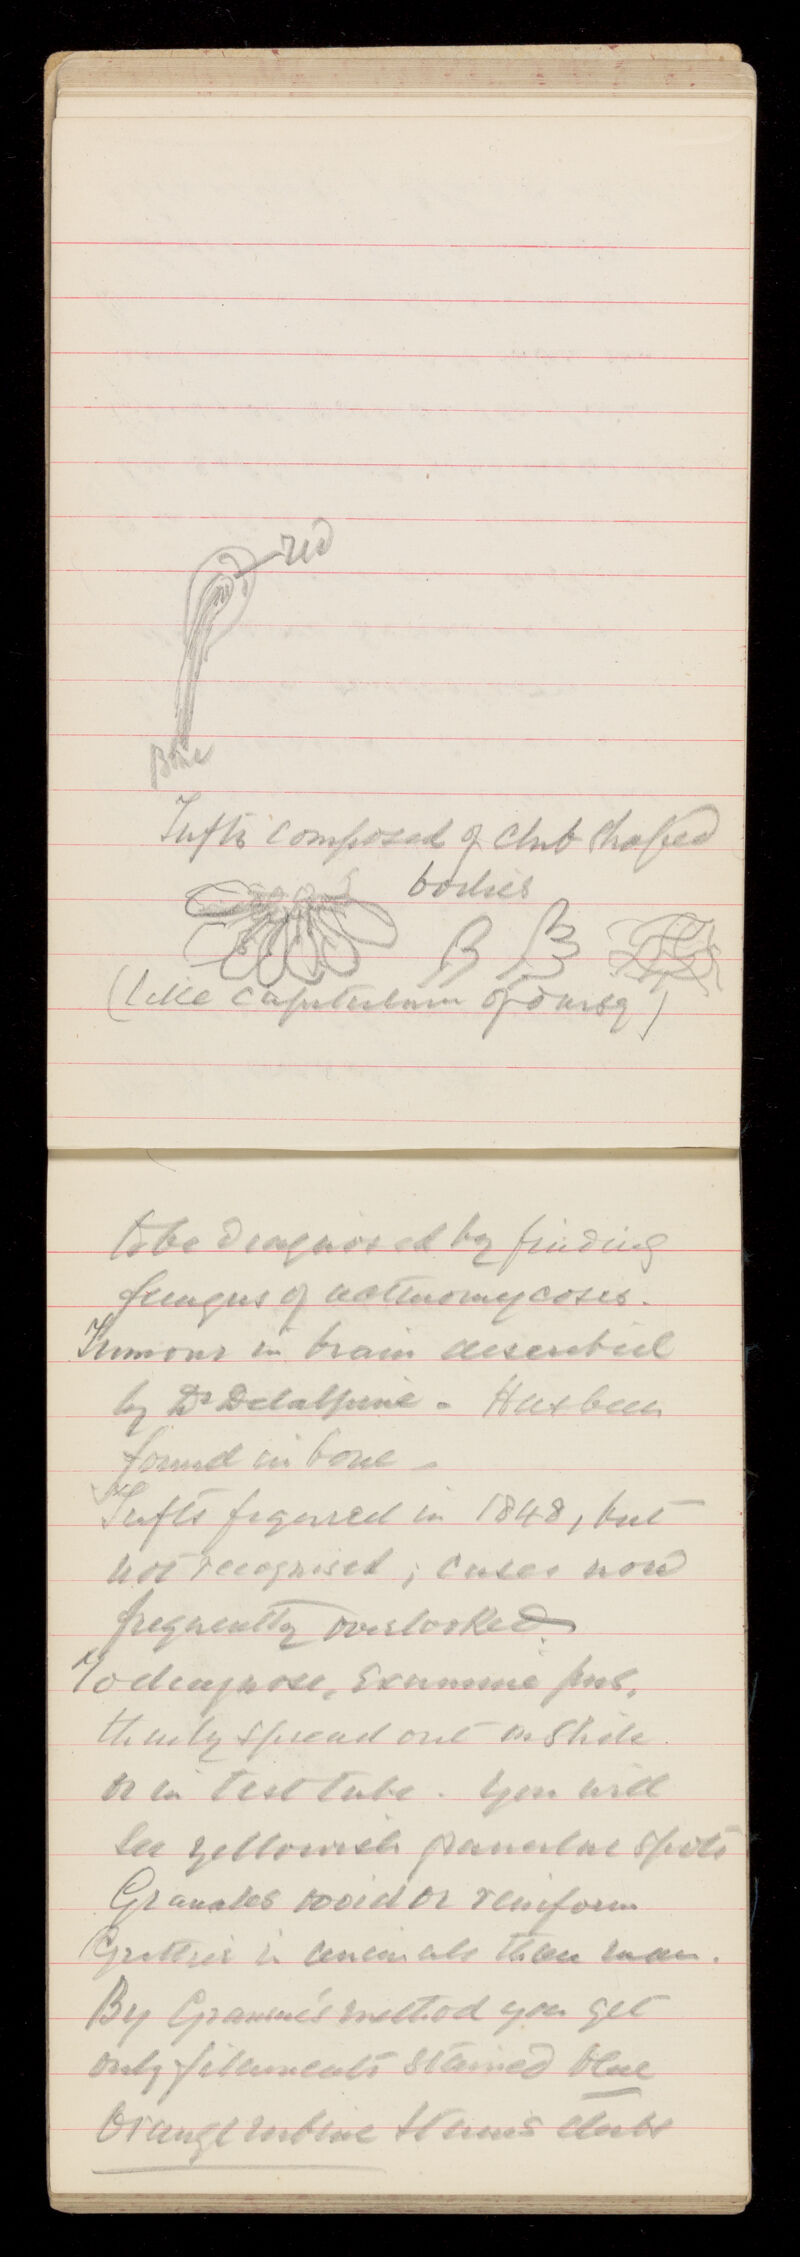 red
Blue
Tufts composed of club shaped
bodies
(like capitulum of daisy)
to be diagnosed by finding
fungus of actinomycoses.
Tumour in brain described
by Dr Delalpine - Has been
found in bone -
Tufts figured in 1848, but
not recognised; cases now
frequently overlooked.
To diagnose, Examine pus,
thinly spread out on slide
or in test tube. You will
see yellowish granular spots
Granules ovoid or reniform
Grittier in animals than man.
By Gramme's method you get
only filaments stained blue
Orange rubine stains clubs